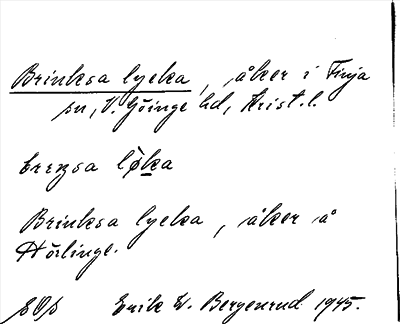 Brinksa lycka, åker i Finja
sn, V. Göinge hd, Krist. l.
løka
Brinksa lycka, åker å
Hörlinge.
Erik W. Bergenrud 1945.